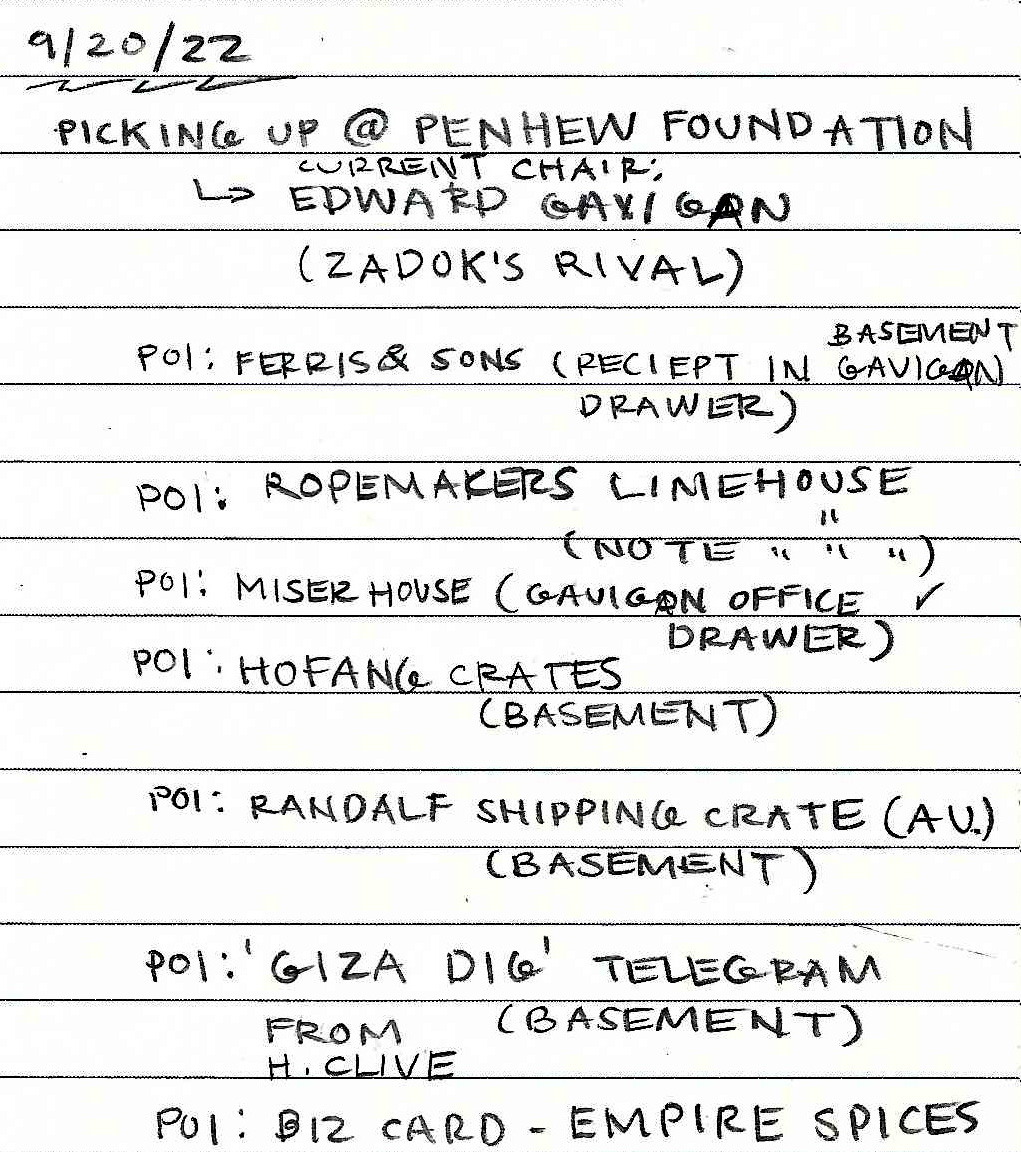 9/20/22
PICKING UP @ PENHEW FOUNDATION
CURRENT CHAIR:
↳ EDWARD GAVIGAN
(ZADOK'S RIVAL)
BASEMENT
POI: FERRIS & SONS (RECIEPT IN GAVIGAN
DRAWER)
POI: ROPEMAKERS LIMEHOUSE
"
(NOTE " " ")
POI: MISER HOUSE (GAVIGAN OFFICE ✓
DRAWER)
POI: HOFANG CRATES
(BASEMENT)
POI: RANDALF SHIPPING CRATE (AU.)
(BASEMENT)
POI: 'GIZA DIG' TELEGRAM
FROM (BASEMENT)
H. CLIVE
POI: BIZ CARD - EMPIRE SPICES